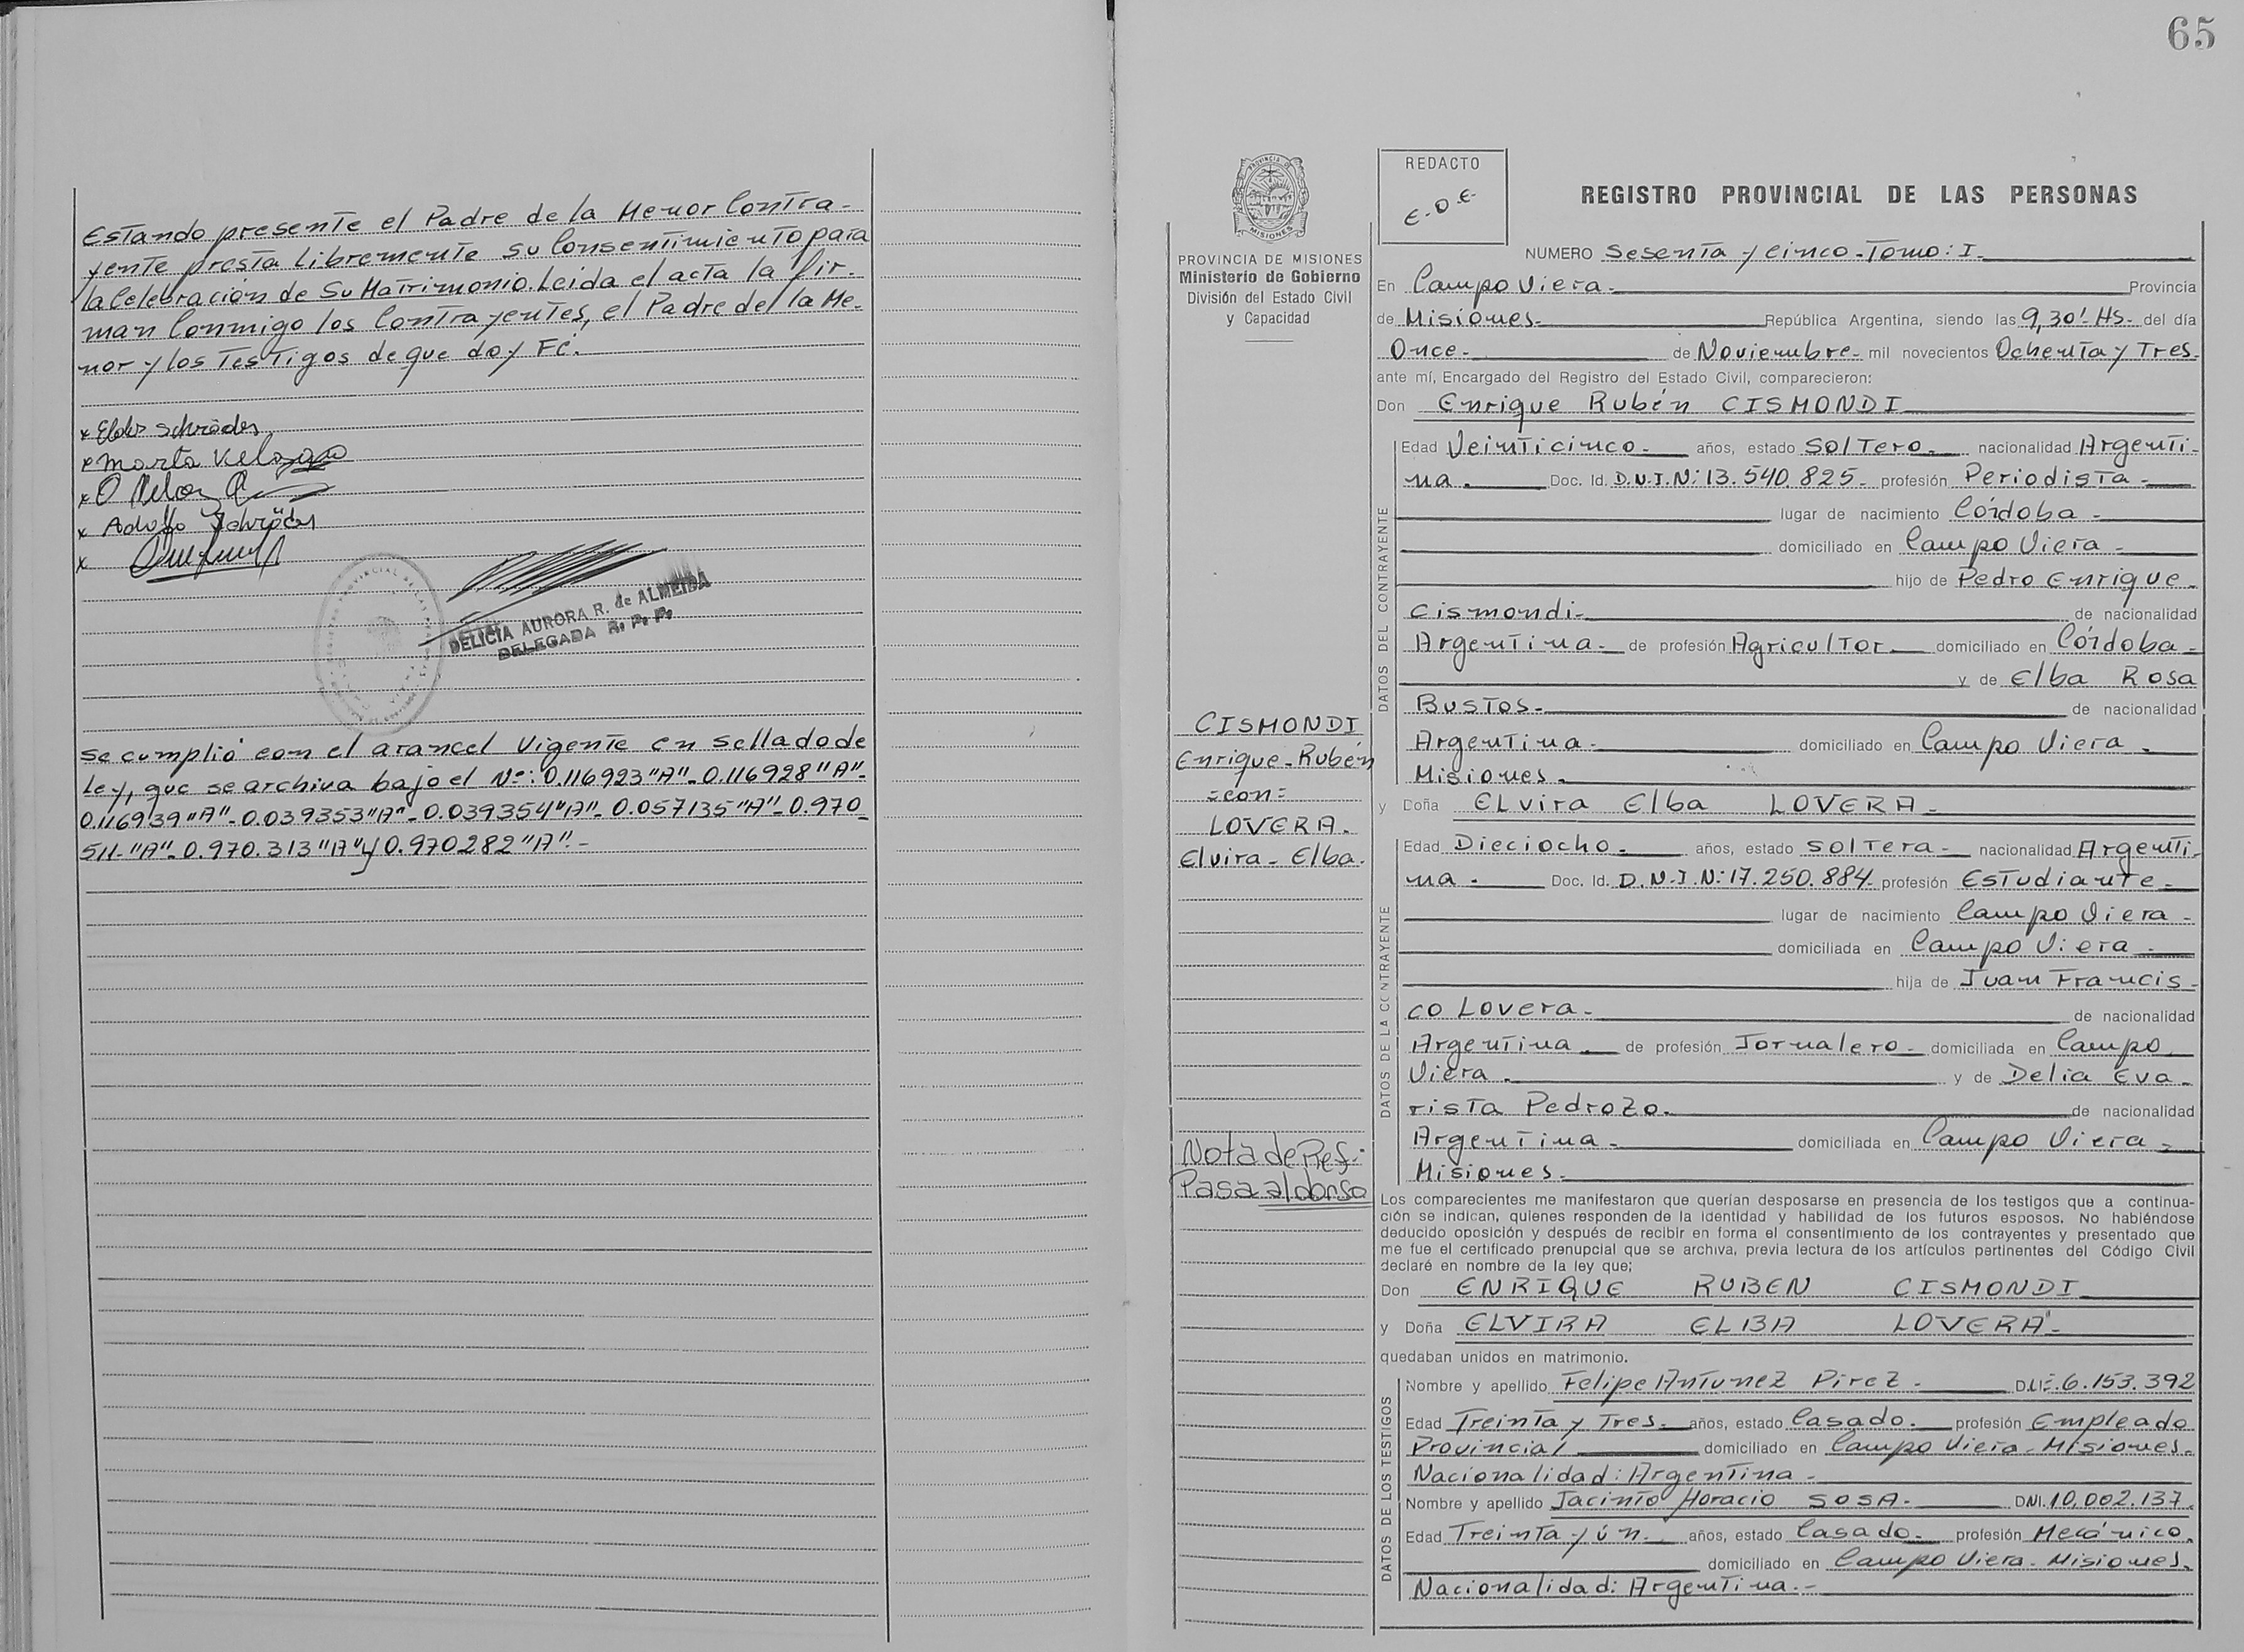 Estando presente el Padre de la Menor Contra-
yente presta libremente su Consentimiento para
la Celebración de Su Matrimonio. Leida el acta la fir-
man Conmigo los Contrayentes, el Padre del la Me-
nor y los Testigos de que doy Fé.
x Elder Schröder
x Marta Velozo
x Adolfo Schröder
DELICIA AURORA R. de ALMEIDA
DELEGADA R. P. P.
Se cumplió con el arancel Vigente en Sellado de
Ley, que se archiva bajo el Nº: 0.116923 "A"- 0.116928 "A"-
0.116939 "A"- 0.039353 "A"- 0.039354 "A"- 0.057135 "A"- 0.970-
511- "A"- 0.970.313 "A" y 0.970282 "A".-
65
PROVINCIA DE MISIONES
Ministerio de Gobierno
División del Estado Civil
y Capacidad
CISMONDI
Enrique-Rubén
=con=
LOVERA.
Elvira-Elba.
Nota de Ref:
Pasa al dorso
REDACTO
E.O.E.
REGISTRO PROVINCIAL DE LAS PERSONAS
NUMERO Sesenta y Cinco-Tomo: I.
En Campo Viera. Provincia
de Misiones. República Argentina, siendo las 9,30' HS. del día
Once. de Noviembre. mil novecientos Ochenta y Tres.
ante mí, Encargado del Registro del Estado Civil, comparecieron:
Don Enrique Rubén CISMONDI
DATOS DEL CONTRAYENTE
Edad Veinticinco. años, estado Soltero. nacionalidad Argenti-
na. Doc. Id. D.N.I.N: 13.540.825. profesión Periodista.
lugar de nacimiento Córdoba.
domiciliado en Campo Viera.
hijo de Pedro Enrique
Cismondi. de nacionalidad
Argentina. de profesión Agricultor. domiciliado en Córdoba.
y de Elba Rosa
Bustos. de nacionalidad
Argentina. domiciliado en Campo Viera.
Misiones.
y Doña ELvira Elba LOVERA.
DATOS DE LA CONTRAYENTE
Edad Dieciocho. años, estado Soltera. nacionalidad Argenti-
na. Doc. Id. D.N.I.N: 17.250.884. profesión Estudiante.
lugar de nacimiento Campo Viera.
domiciliada en Campo Viera.
hija de Juan Francis-
co Lovera. de nacionalidad
Argentina. de profesión Jornalero. domiciliada en Campo
Viera. y de Delia Eva-
rista Pedrozo. de nacionalidad
Argentina. domiciliada en Campo Viera.
Misiones.
Los comparecientes me manifestaron que querían desposarse en presencia de los testigos que a continua-
ción se indican, quienes responden de la identidad y habilidad de los futuros esposos. No habiéndose
deducido oposición y después de recibir en forma el consentimiento de los contrayentes y presentado que
me fue el certificado prenupcial que se archiva, previa lectura de los artículos pertinentes del Código Civil
declaré en nombre de la ley que;
Don ENRIQUE RUBEN CISMONDI
y Doña ELVIRA ELBA LOVERA.
quedaban unidos en matrimonio.
DATOS DE LOS TESTIGOS
Nombre y apellido Felipe Antunez Pirez. 6.153.392
Edad Treinta y Tres. años, estado Casado. profesión Empleado
Provincial domiciliado en Campo Viera-Misiones.
Nacionalidad: Argentina.
Nombre y apellido Jacinto Horacio SOSA. DNI. 10.002.137.
Edad Treinta y ún. años, estado Casado. profesión Mecánico.
domiciliado en Campo Viera-Misiones.
Nacionalidad: Argentina.-